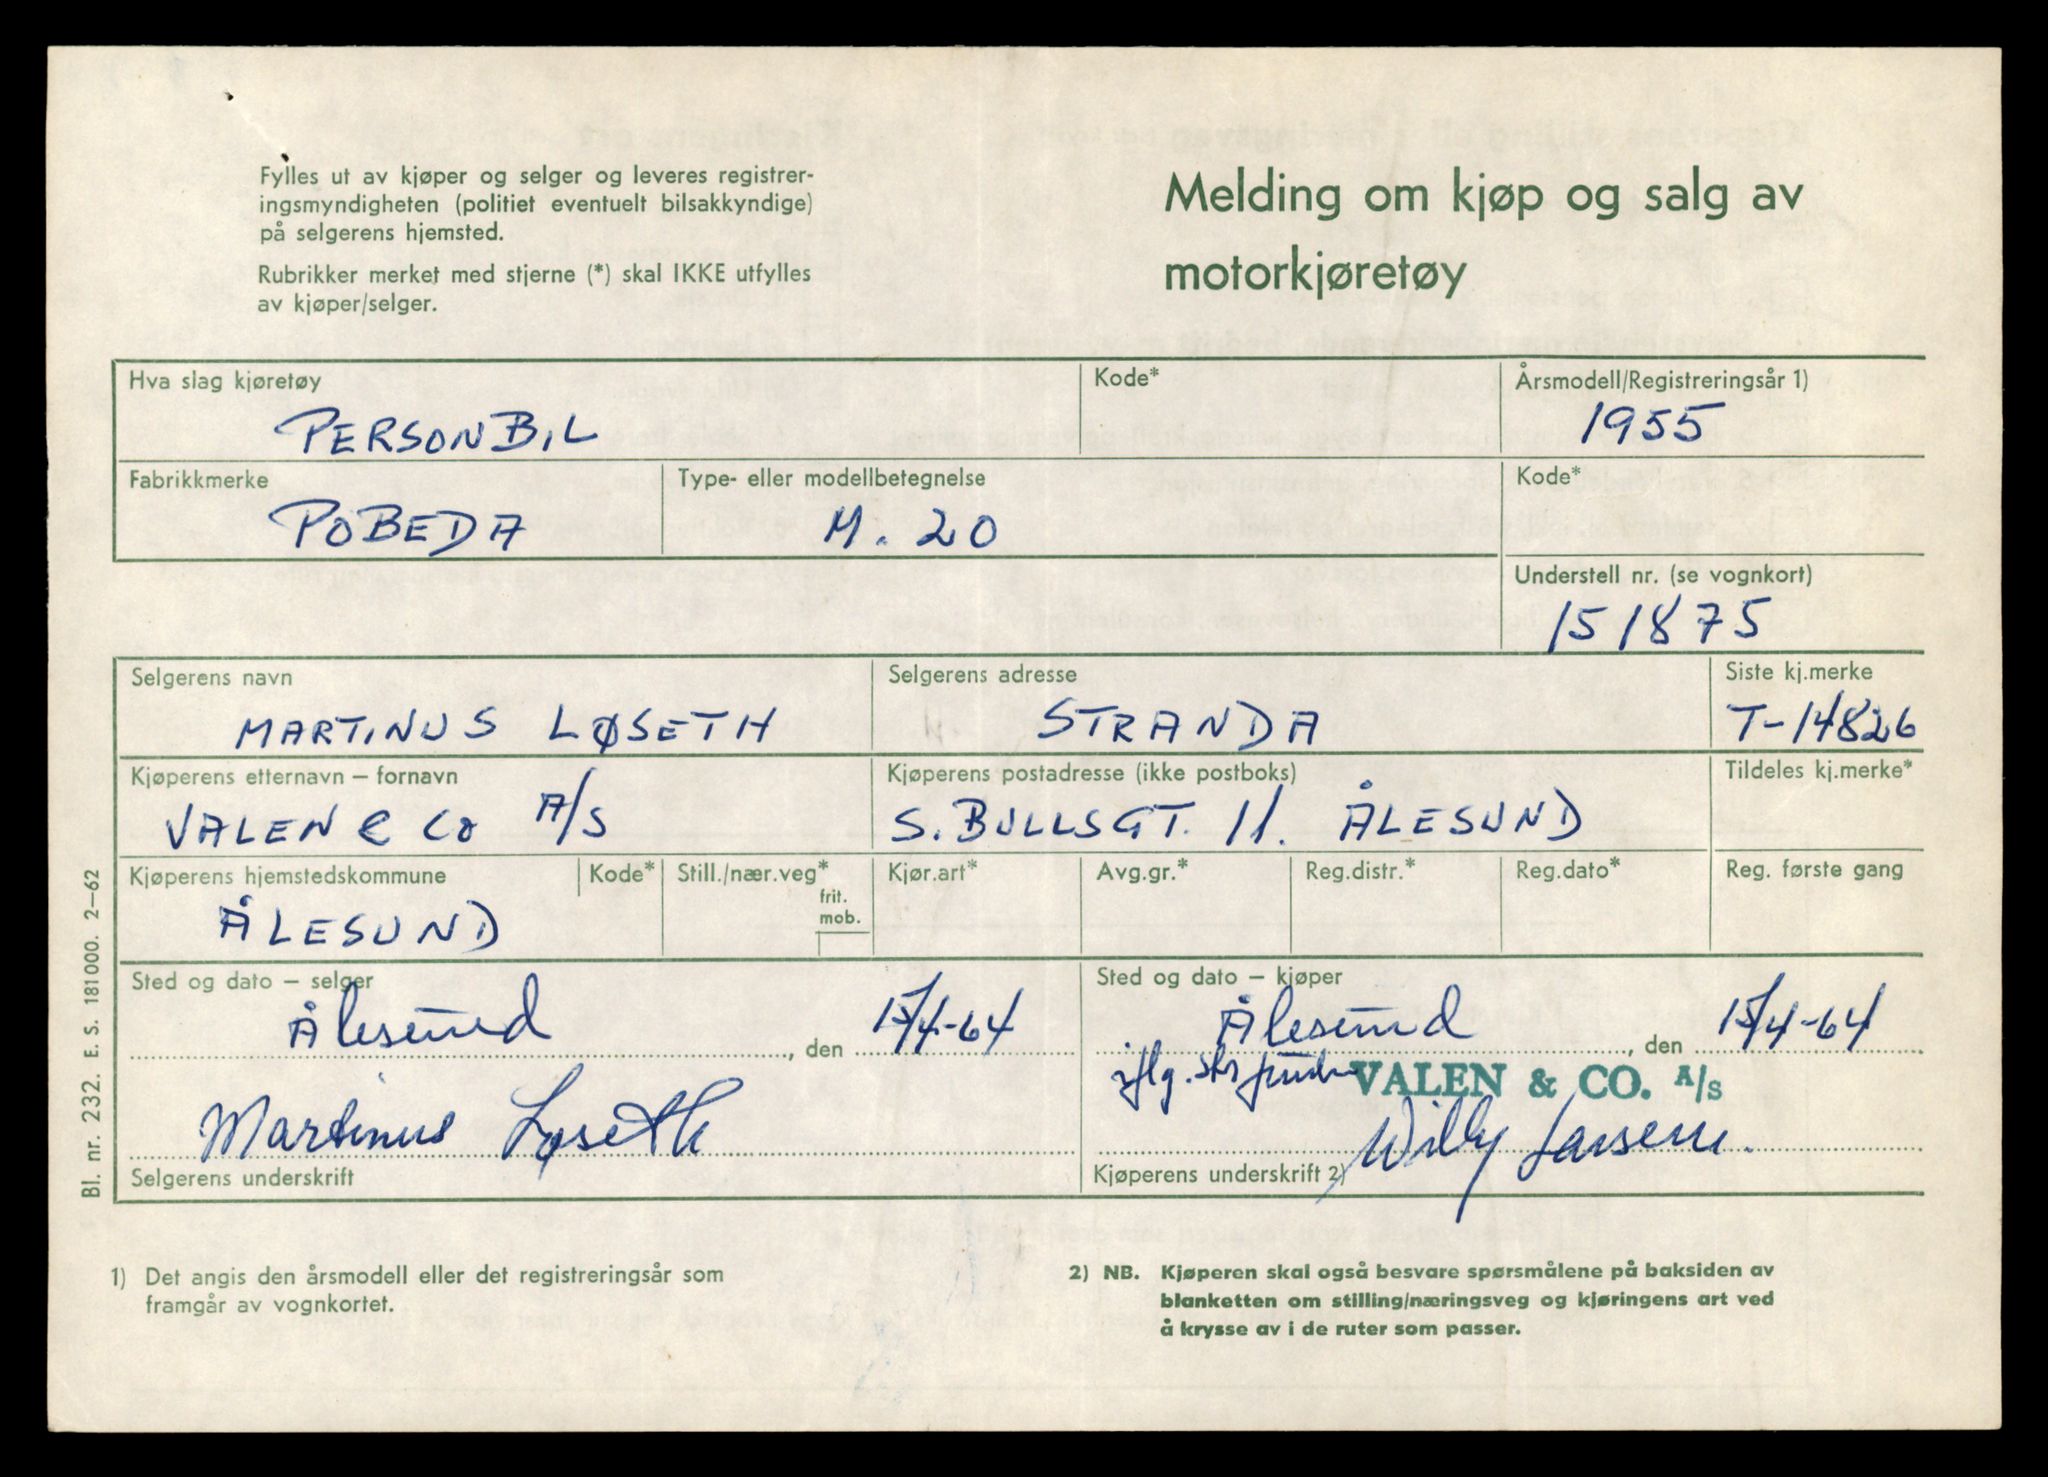 Fylles ut av kjøper og selger og leveres registrer-
ingsmyndigheten (politiet eventuelt bilsakkyndige)
på selgerens hjemsted.
Rubrikker merket med stjerne (*) skal IKKE utfylles
av kjøper/selger.
Melding om kjøp og salg av
motorkjøretøy
Hva slag kjøretøy
PERSONBIL
Kode*
Årsmodell/Registreringsår 1)
1955
Fabrikkmerke
POBEDA
Type- eller modellbetegnelse
M. 20
Kode*
Understell nr. (se vognkort)
151875
Selgerens navn
MARTINUS LØSETH
Selgerens adresse
STRANDA
Siste kj.merke
T-14826
Kjøperens etternavn – fornavn
VALEN & Co A/S
Kjøperens postadresse (ikke postboks)
S. BULLSGT. 11. ÅLESUND
Tildeles kj.merke*
Kjøperens hjemstedskommune
ÅLESUND
Kode*
Still./nær.veg*
frit.
mob.
Kjør.art*
Avg.gr.*
Reg.distr.*
Reg.dato*
Reg. første gang
Sted og dato – selger
Ålesund, den 15/4-64
Martinus Løseth
Selgerens underskrift
Sted og dato – kjøper
Ålesund, den 15/4-64
VALEN & CO. A/S
Willy Larsen.
Kjøperens underskrift 2)
Bl. nr. 232. E. S. 181000. 2–62
1) Det angis den årsmodell eller det registreringsår som
framgår av vognkortet.
2) NB. Kjøperen skal også besvare spørsmålene på baksiden av
blanketten om stilling/næringsveg og kjøringens art ved
å krysse av i de ruter som passer.